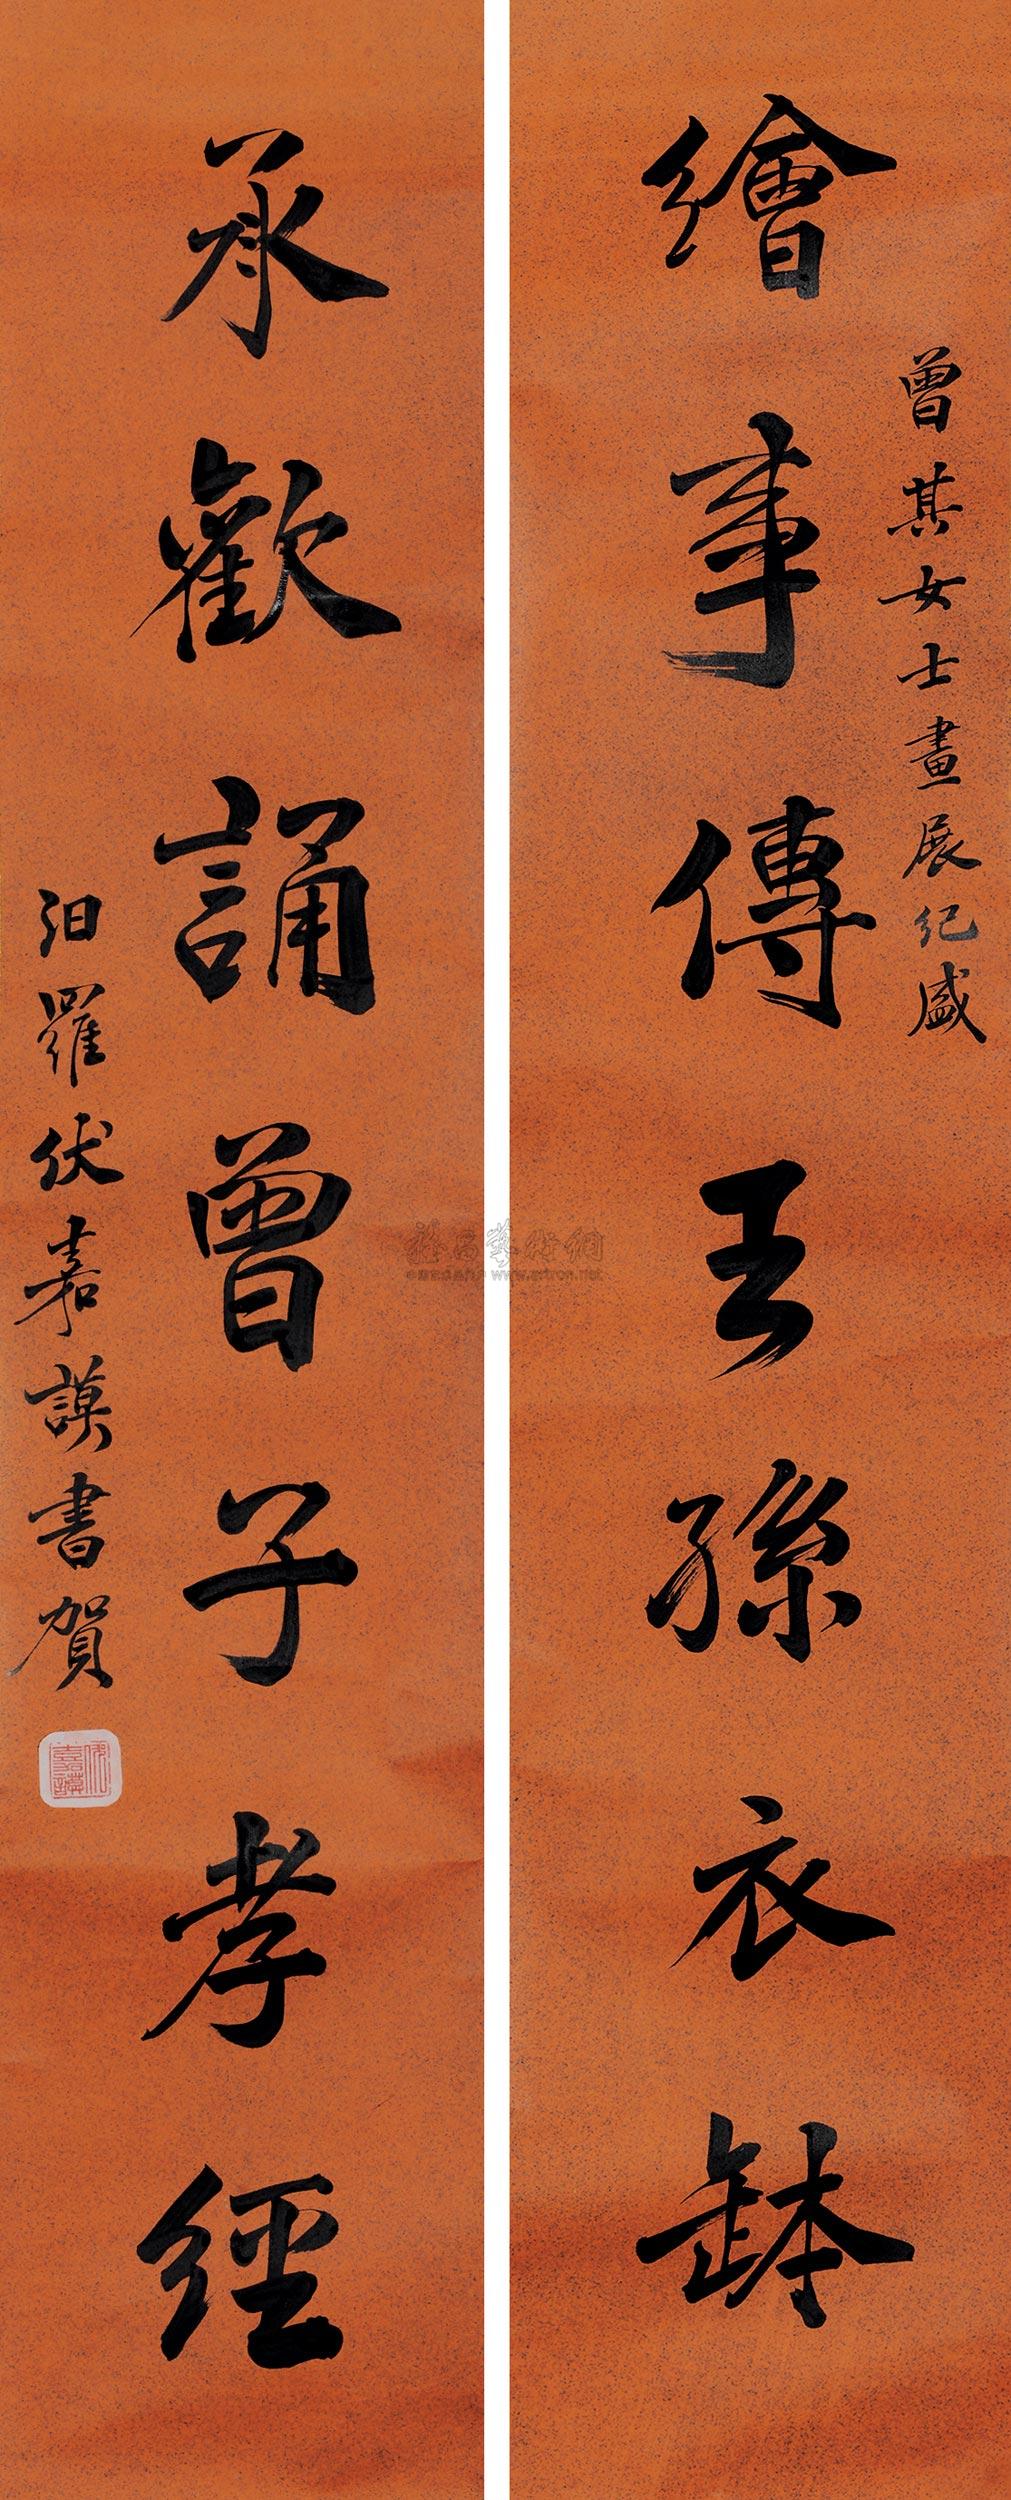 曾其女士畫展紀盛
繪事傳王孫衣缽
承歡誦曾子孝經
汨羅伏嘉謨書賀
伏嘉謨
www.artron.net